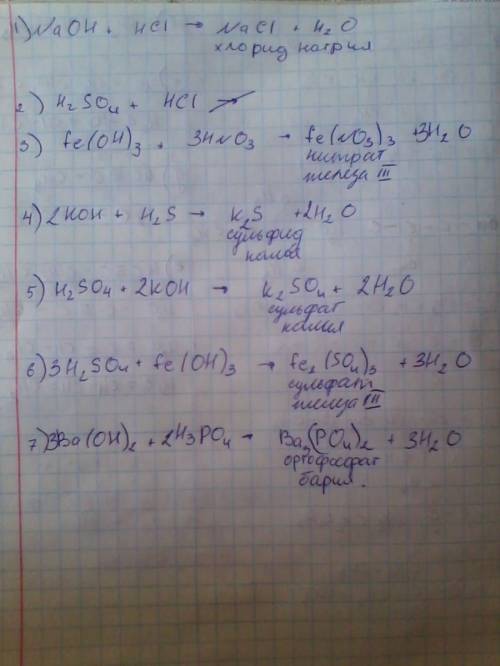 1) NaOH + HCl → NaCl + H₂O
хлорид натрия
2) H₂SO₄ + HCl →
3) Fe(OH)₃ + 3HNO₃ → Fe(NO₃)₃ + 3H₂O
нитрат
железа III
4) 2KOH + H₂S → K₂S + 2H₂O
сульфид
калия
5) H₂SO₄ + 2KOH → K₂SO₄ + 2H₂O
сульфат
калия
6) 3H₂SO₄ + Fe(OH)₃ → Fe₂(SO₄)₃ + 3H₂O
сульфат
железа III
7) 3Ba(OH)₂ + 2H₃PO₄ → Ba₃(PO₄)₂ + 3H₂O
ортофосфат
бария.